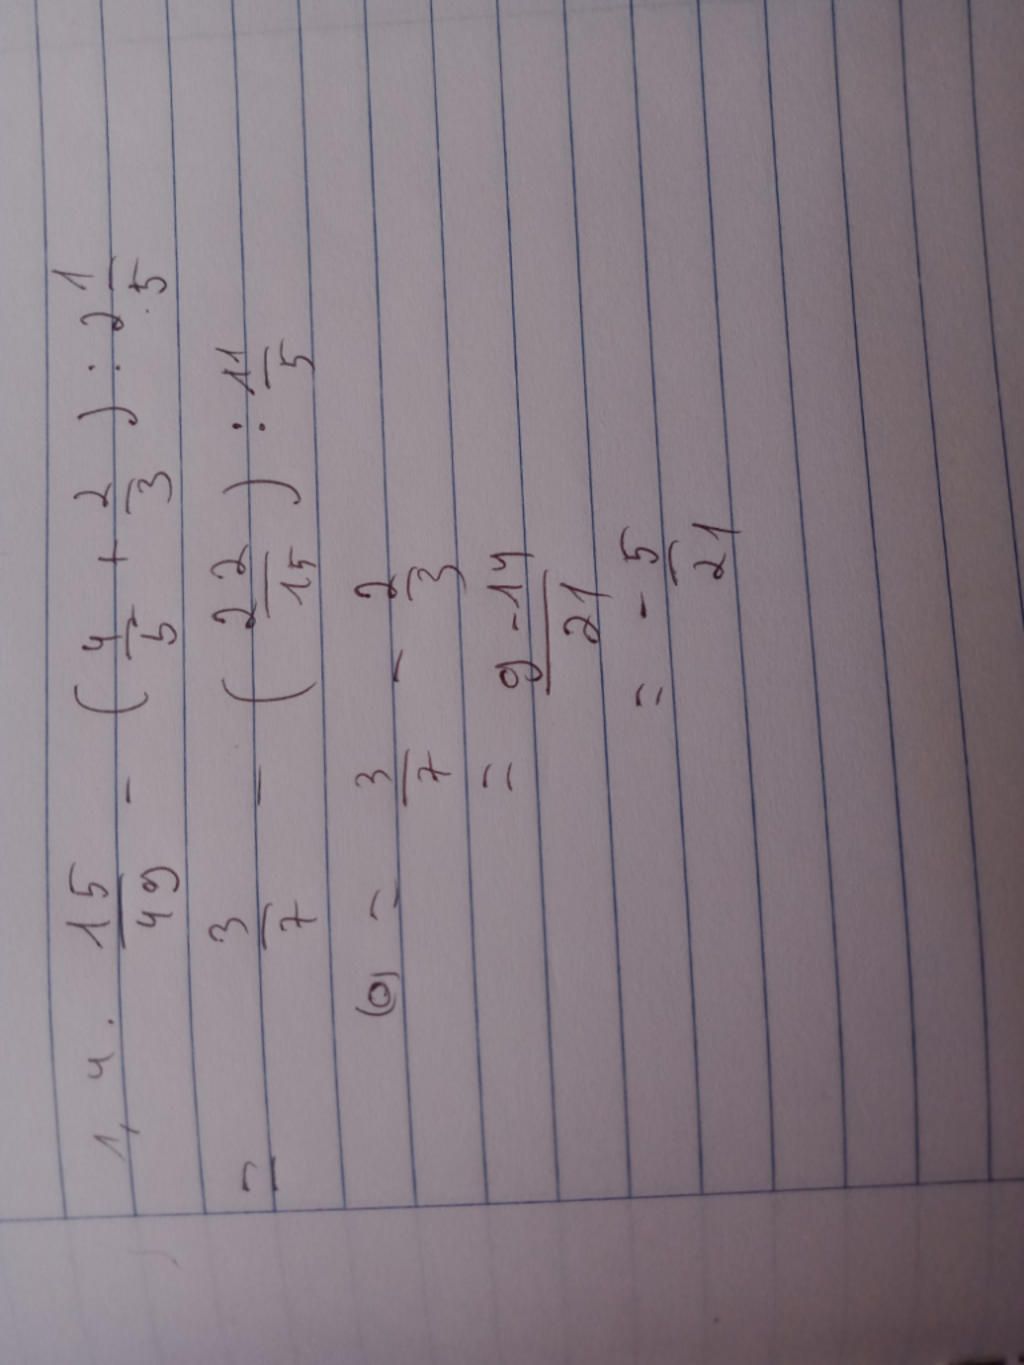 1,4. 15/49 - (4/5 + 2/3) : 2 1/5
= 3/7 - (22/15) : 11/5
(o) = 3/7 - 2/3
= 9-14/21
= -5/21